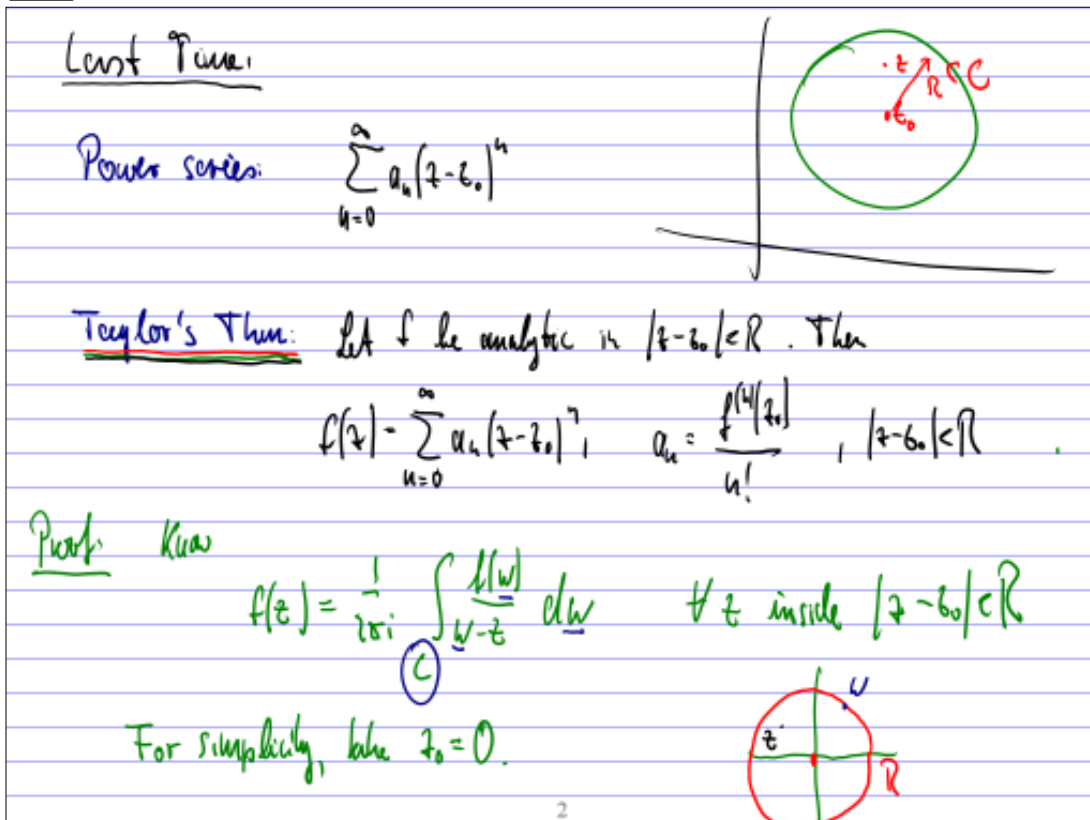 Last Time:
z
R C
z₀
Power series: \sum_{n=0}^{\infty} a_n (z-z_0)^n
Taylor's Thm: Let f be analytic in |z-z_0|<R. Then
f(z) = \sum_{n=0}^{\infty} a_n (z-z_0)^n, a_n = \frac{f^{(n)}(z_0)}{n!}, |z-z_0|<R.
Proof: Know
f(z) = \frac{1}{2πi} \int_C \frac{f(w)}{w-z} dw ∀ z inside |z-z_0|<R
w
z
For simplicity, take z_0 = 0.
R
2